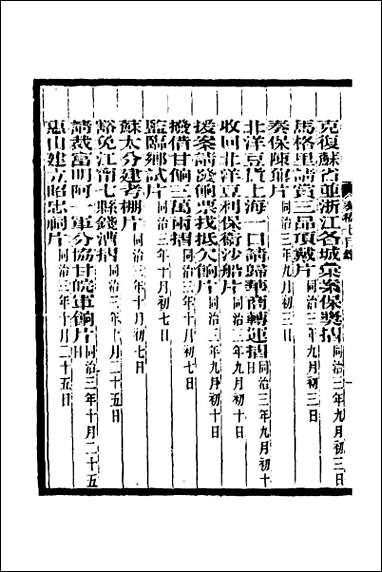 奏稿七目錄
一
克復蘇省並浙江各城彙案保獎摺同治三年九月初三日
馬格里請賞三品頂戴片同治三年九月初三日
奏保陳鼐片同治三年九月初三日
北洋豆貨上海一口請歸華商轉運摺同治三年九月初十日
收回北洋豆利保衛沙船片同治三年九月初十日
援案請發餉票找抵欠餉片同治三年九月初十日
撥借甘餉三萬兩摺同治三年十月初七日
監臨鄉試片同治三年十月初七日
蘇太分建考棚片同治三年十月初七日
豁免江甯七縣錢漕摺同治三年十月二十五日
請裁富明阿一軍分協甘皖軍餉片同治三年十月二十五日
惠山建立昭忠祠片同治三年十月二十五日